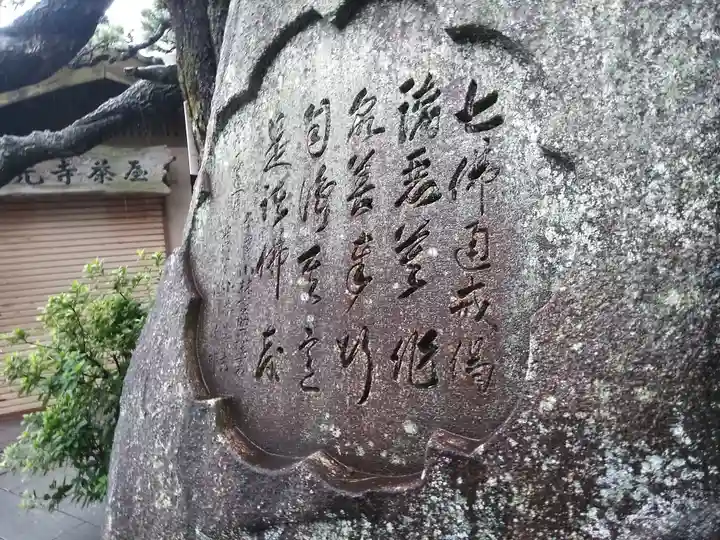 七佛通戒偈
諸悪莫作
衆善奉行
自浄其意
是諸佛教
屋茶寺光